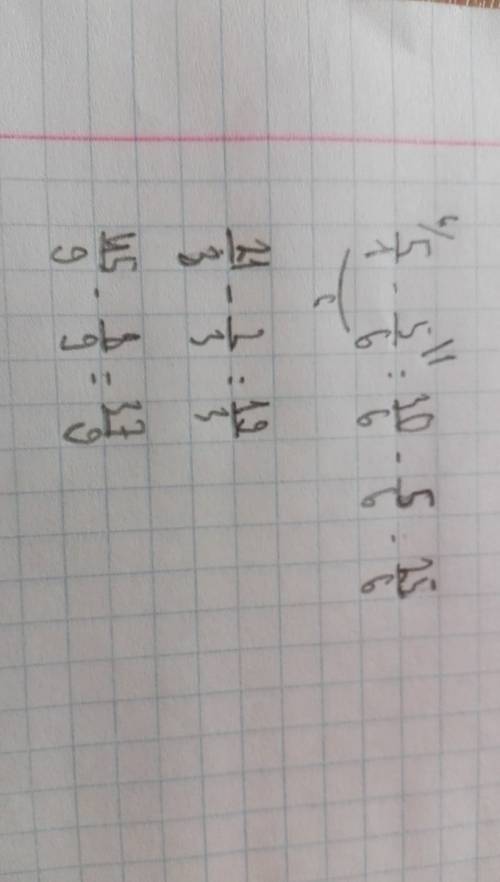 6/ 5/1 - 5/6 \1 = 30/6 - 5/6 = 25/6
6
21/3 - 2/3 = 19/3
45/9 - 8/9 = 37/9